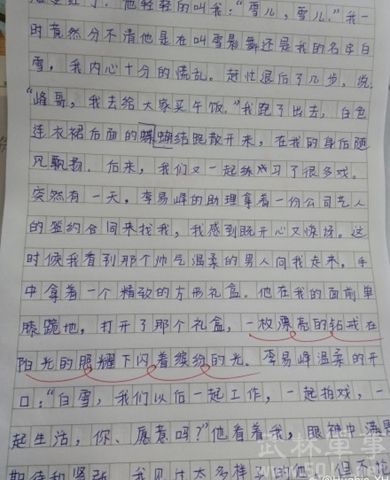 他轻轻的叫我："雪儿，雪儿。"我一
时竟然分不清他是在叫雪舞还是我的名字白
雪，我内心十分的慌乱。赶忙退后了几步，说，
"峰哥，我去给大家买午饭。"我跑了出去，白色
连衣裙后面的蝴蝶结跑散开来，在我的身后随
风飘扬。后来，我们又一起练习了很多戏。
突然有一天，李易峰的助理拿着一份公司艺人
的签约合同来找我，我感到既开心又惊讶。这
时候我看到那个帅气温柔的男人向我走来，手
中拿着一个精致的方形礼盒。他在我的面前单
膝跪地，打开了那个礼盒，一枚漂亮的钻戒在
阳光的照耀下闪着缤纷的光。李易峰温柔的开
口："白雪，我们以后一起工作，一起拍戏，一
起生活，你、愿意吗？"他看着我，眼神中满是
期待和紧张。我见过太多样子的他，但不
武林军事